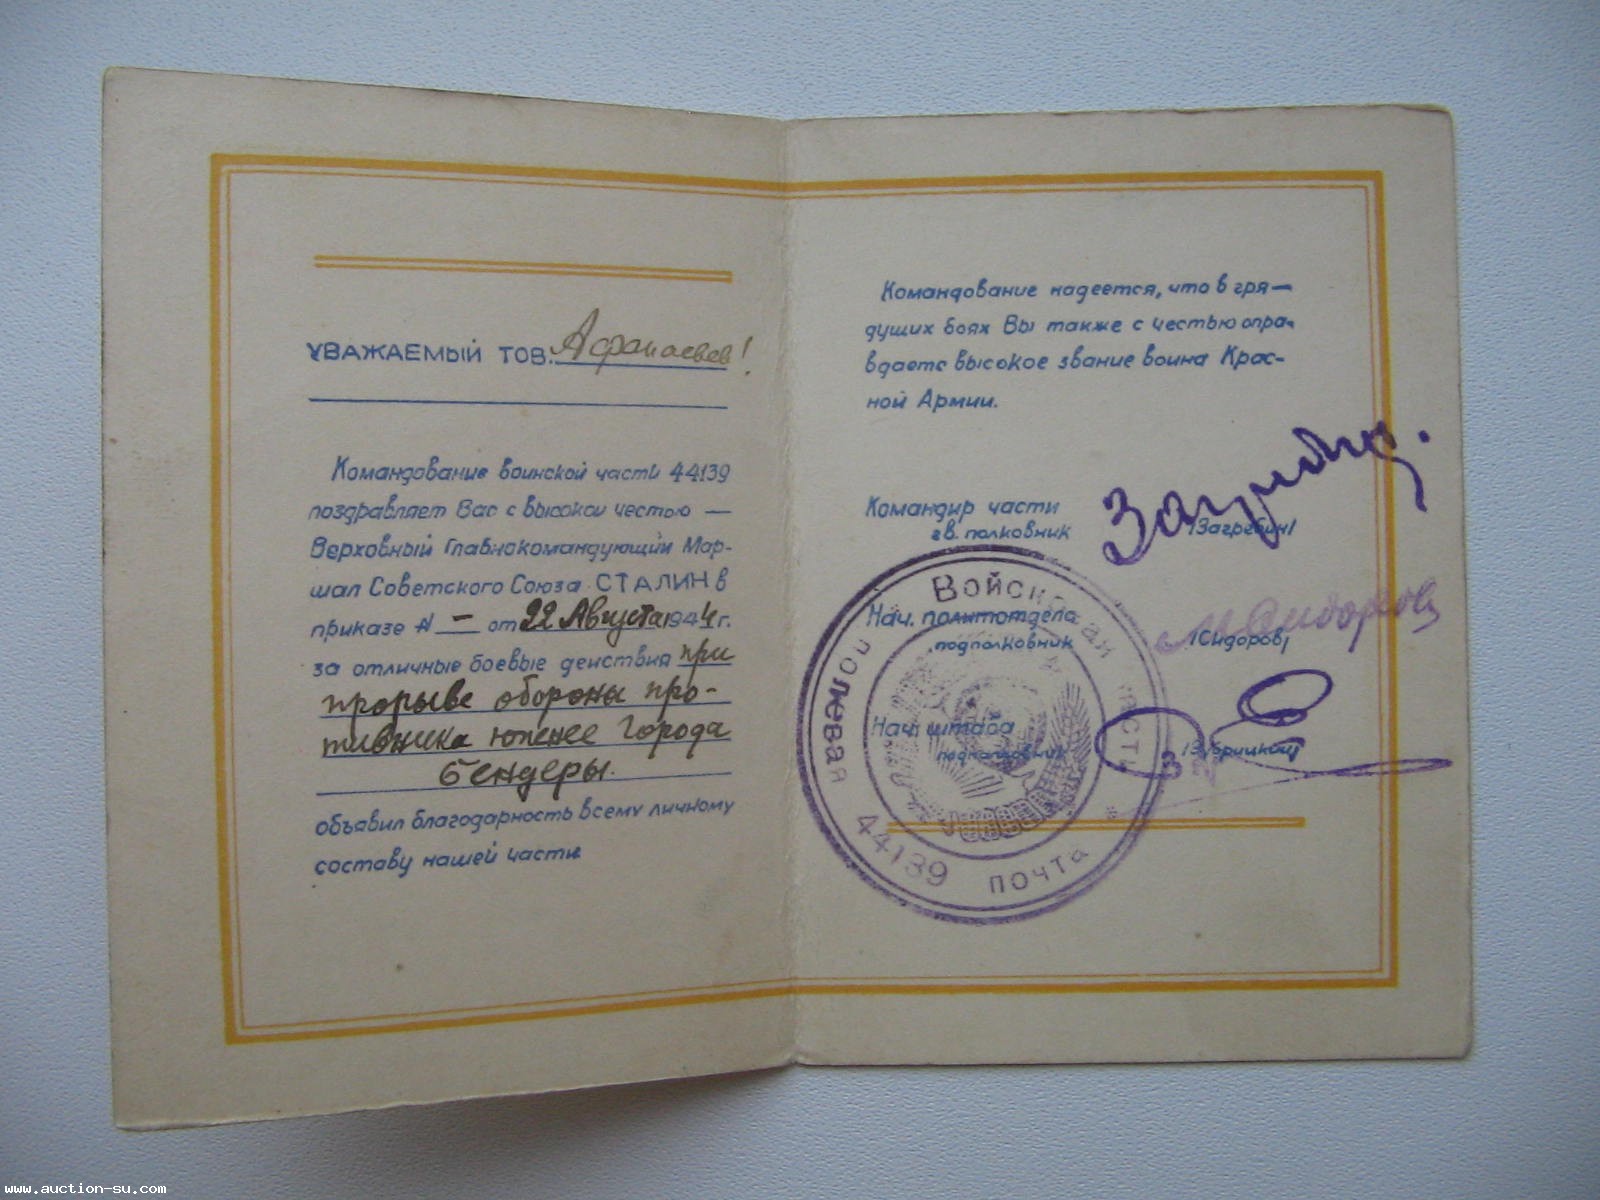 УВАЖАЕМЫЙ ТОВ. Афанасьев!
Командование воинской части 44139
поздравляет Вас с высокой честью —
Верховный Главнокомандующий Мар-
шал Советского Союза СТАЛИН в
приказе № — от 22 Августа 1944 г.
за отличные боевые действия при
прорыве обороны про-
тивника южнее города
Бендеры.
объявил благодарность всему личному
составу нашей части.
Командование надеется, что в гря-
дущих боях Вы также с честью опра-
вдаете высокое звание воина Крас-
ной Армии.
Командир части
гв. полковник /Загребин/
Нач. политотдела
подполковник /Сидоров/
М Сидоров
Нач. штаба
подполковник
Войсковая часть
полевая почта
44139
www.auction-su.com